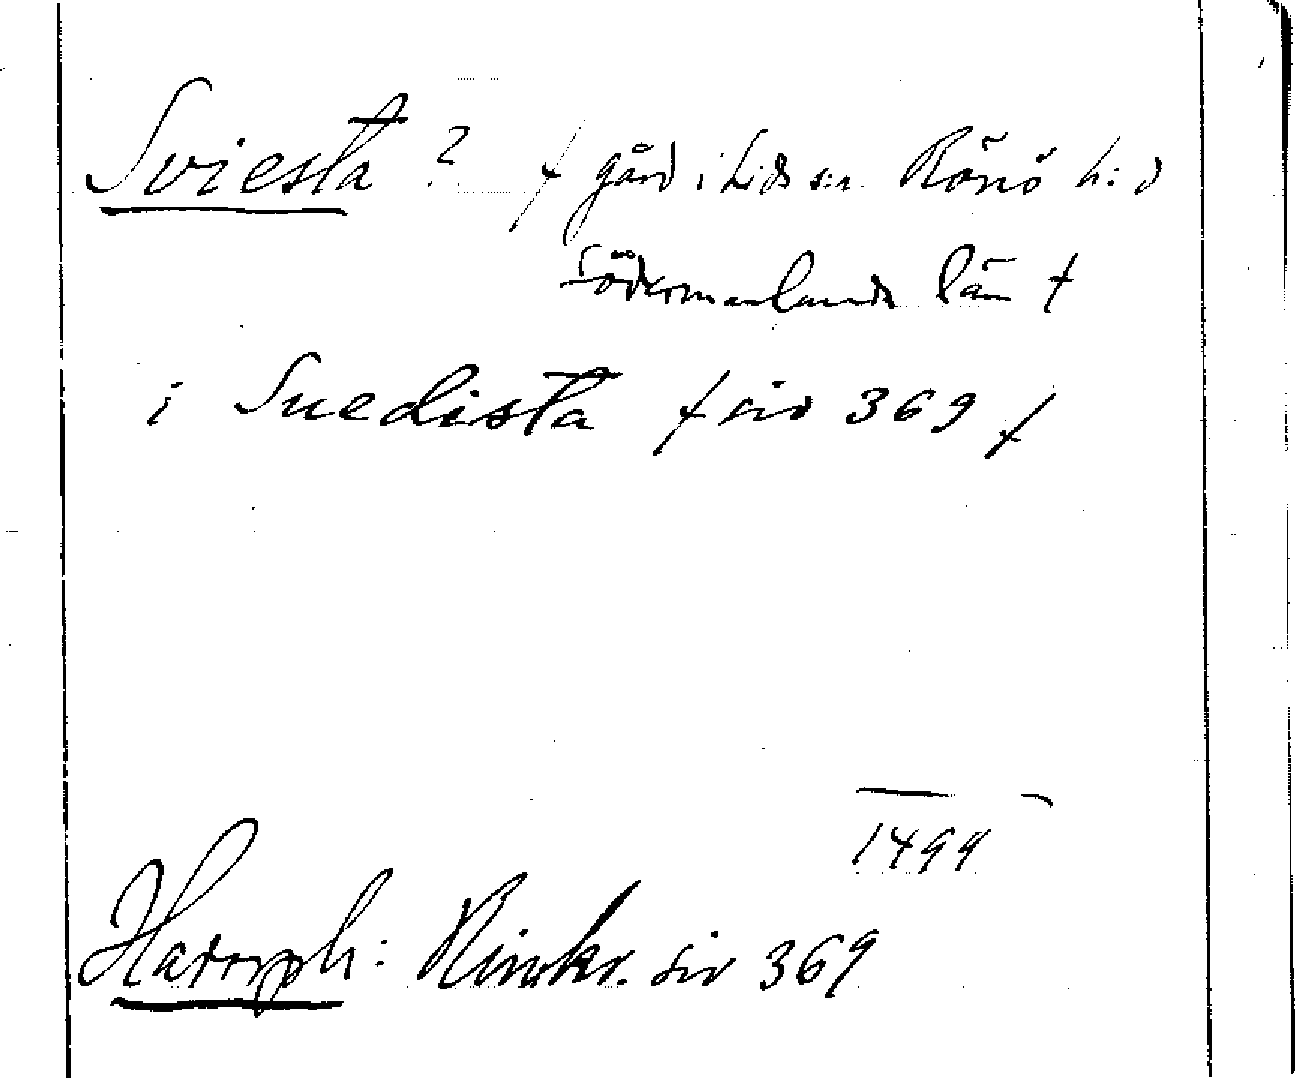 Sviesta ? / gård i Lids s:n Rönö h:d
Södermanlands län /
i Suedista / sid 369 /
1494
Hadorph: Rimkr. sid 369